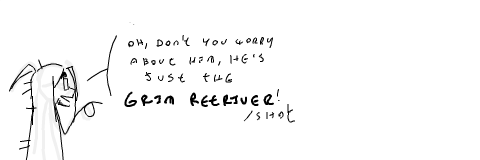 OH, DON'T YOU WORRY
ABOUT HIM, HE'S
JUST THE
GRIM REERIVER!
/SHOT